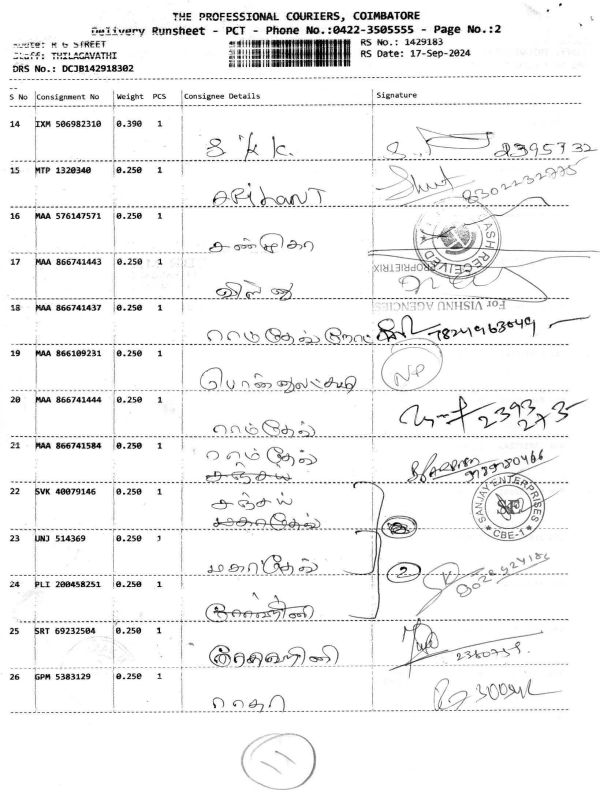 THE PROFESSIONAL COURIERS, COIMBATORE
Delivery Runsheet - PCT - Phone No.:0422-3505555 - Page No.:2
Route: R G STREET
RS No.: 1429183
Staff: THILAGAVATHI
RS Date: 17-Sep-2024
DRS No.: DCJB142918302
S No Consignment No Weight PCS Consignee Details Signature
14 IXM 506982310 0.390 1 S.K.K.
15 MTP 1320340 0.250 1 8302232775
16 MAA 576147571 0.250 1 சண்முகா
17 MAA 866741443 0.250 1 விஸ்ணு
CASH RECEIVED
PROPRIETRIX
For VISHNU AGENCIES
18 MAA 866741437 0.250 1 ராமதேவ்
19 MAA 866109231 0.250 1 பொன்னுலட்சுமி NP
20 MAA 866741444 0.250 1 ராம்தேவ் 2393
273
21 MAA 866741584 0.250 1 ராம்தேவ்
சஞ்சய்
22 SVK 40079146 0.250 1 சஞ்சய்
மகாதேவ்
SANJAY ENTERPRISES
SE
CBE-1
23 UNJ 514369 0.250 1 மகாதேவ் 2
24 PLI 200458251 0.250 1
25 SRT 69232504 0.250 1
26 GPM 5383129 0.250 1 ராதா
11